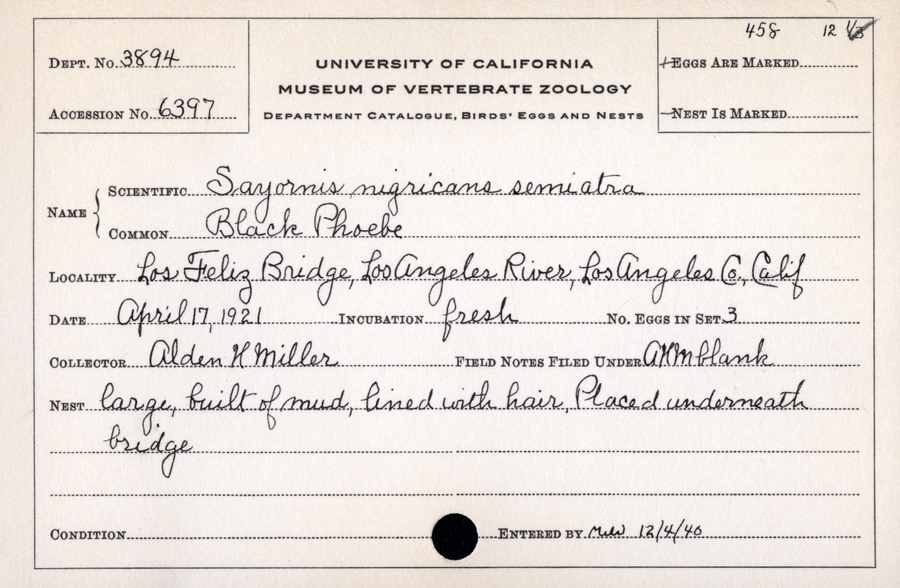 458 12 1/3
DEPT. No. 3894
UNIVERSITY OF CALIFORNIA
EGGS ARE MARKED
MUSEUM OF VERTEBRATE ZOOLOGY
ACCESSION No. 6397
DEPARTMENT CATALOGUE, BIRDS' EGGS AND NESTS
NEST IS MARKED
NAME
SCIENTIFIC Sayornis nigricans semiatra
COMMON Black Phoebe
LOCALITY Los Feliz Bridge, Los Angeles River, Los Angeles Co., Calif
DATE April 17, 1921 INCUBATION fresh No. EGGS IN SET 3
COLLECTOR Alden H Miller FIELD NOTES FILED UNDER AHM blank
NEST large, built of mud, lined with hair, Placed underneath
bridge
CONDITION ENTERED BY 12/4/40